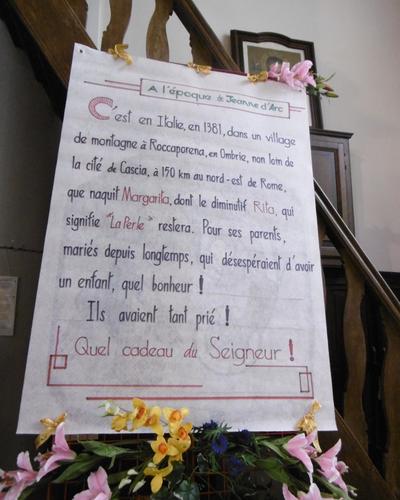 A l'époque de Jeanne d'Arc
C'est en Italie, en 1381, dans un village
de montagne à Roccaporena, en Ombrie, non loin de
la cité de Cascia, à 150 km au nord-est de Rome,
que naquit Margarita, dont le diminutif Rita, qui
signifie "La Perle" restera. Pour ses parents,
mariés depuis longtemps, qui désespéraient d'avoir
un enfant, quel bonheur !
Ils avaient tant prié !
Quel cadeau du Seigneur !